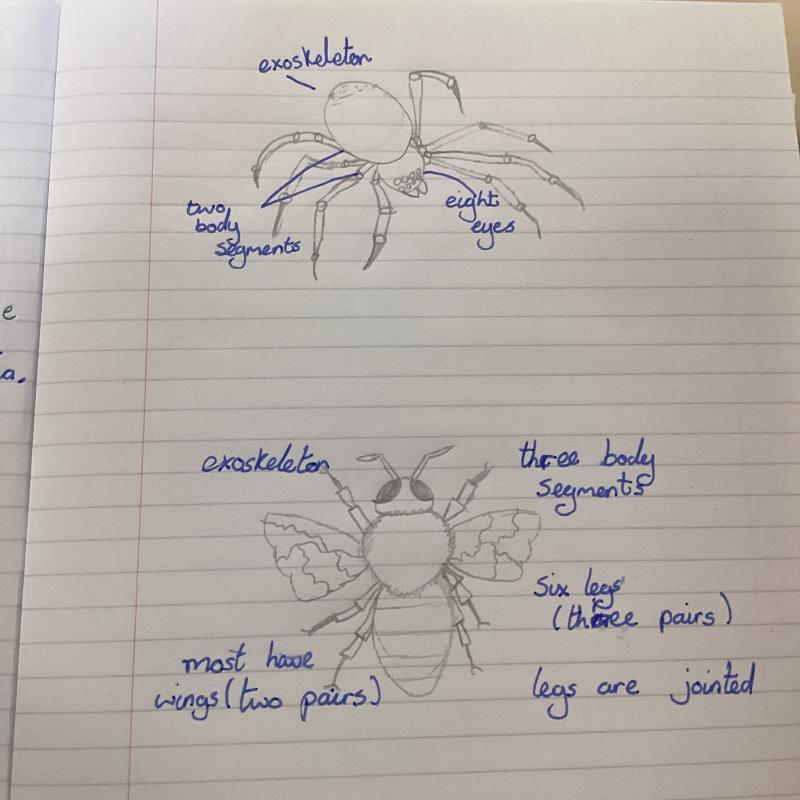 exoskeleton
two
body
segments
eight
eyes
e
a.
exoskeleton
three body
segments
Six legs
(three pairs)
most have
wings (two pairs)
legs are jointed